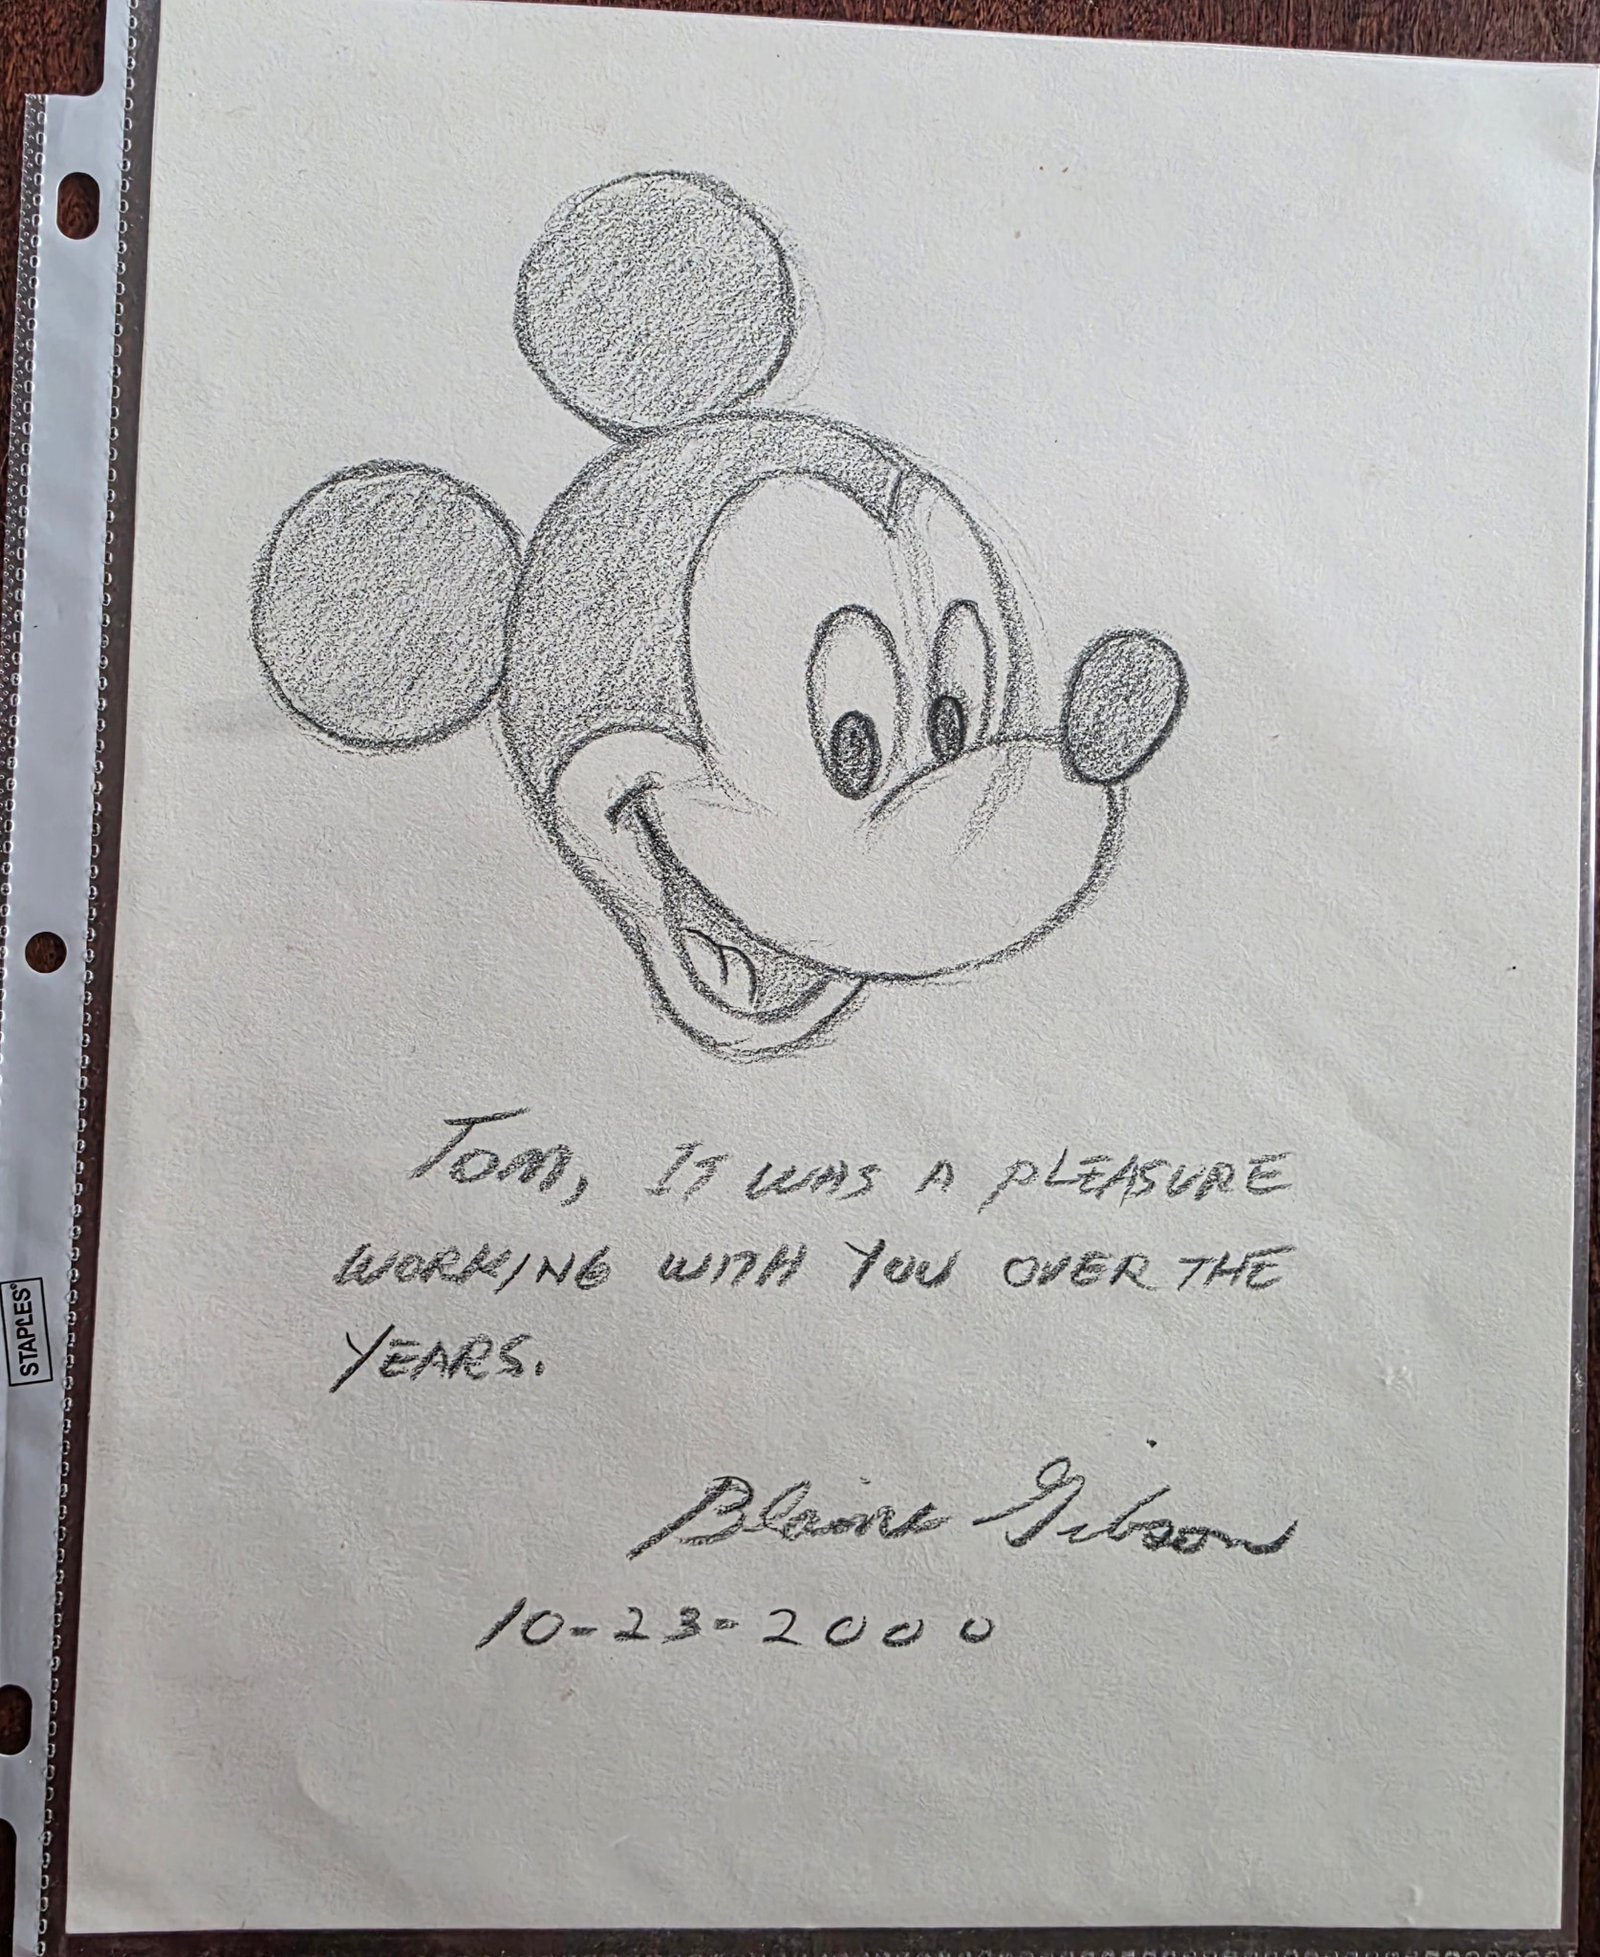 Tom, It was a pleasure
working with you over the
years.
Blaine Gibson
10-23-2000
STAPLES